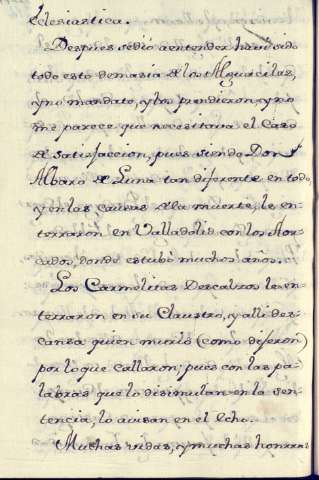 Eclesiastica.
Despues se dió a entender havia sido
todo esto demasia de los Alguaciles,
y no mandato, y los prendieron, y no
me parece que necesitava el Caso
de satisfaccion, pues siendo Don
Albaro de Luna tan diferente en todo,
y en las causas de la muerte, le en-
terraron en Valladolid con los Aor-
cados, donde estubo muchos años.
Los Carmelitas Descalzos le en-
terraron en su Claustro, y alli des-
cansa quien murio (como dijeron)
por lo que callaron; pues con las pa-
labras que lo disimulan en la sen-
tencia, lo avisan en el Echo.
Muchas vidas, y muchas honrras